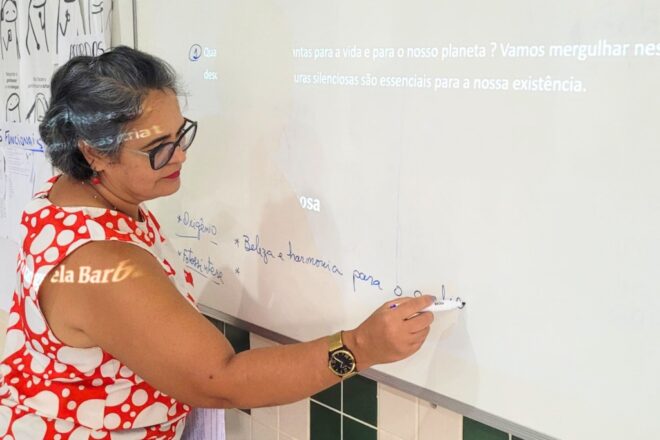 Funcionais
① Qua antas para a vida e para o nosso planeta ? Vamos mergulhar nes
des uras silenciosas são essenciais para a nossa existência.
osa
* Oxigênio
* Beleza e harmonia para o
* Fotossíntese *
ela Barb